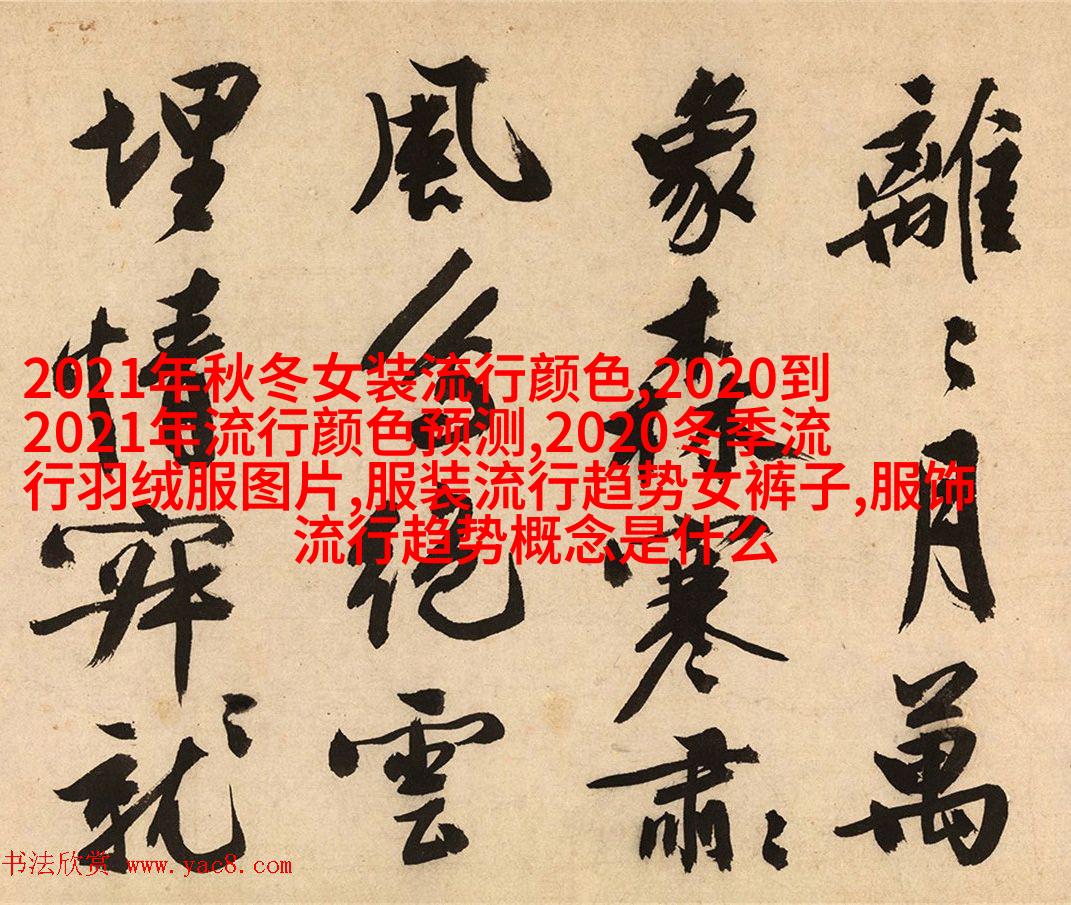 離〻月萬
象森寒肅〻
風 絕雲
埋情 就〻
2021年秋冬女装流行颜色,2020到
2021年流行颜色预测,2020冬季流
行羽绒服图片,服装流行趋势女裤子,服饰
流行趋势概念是什么
书法欣赏 www.yac8.com